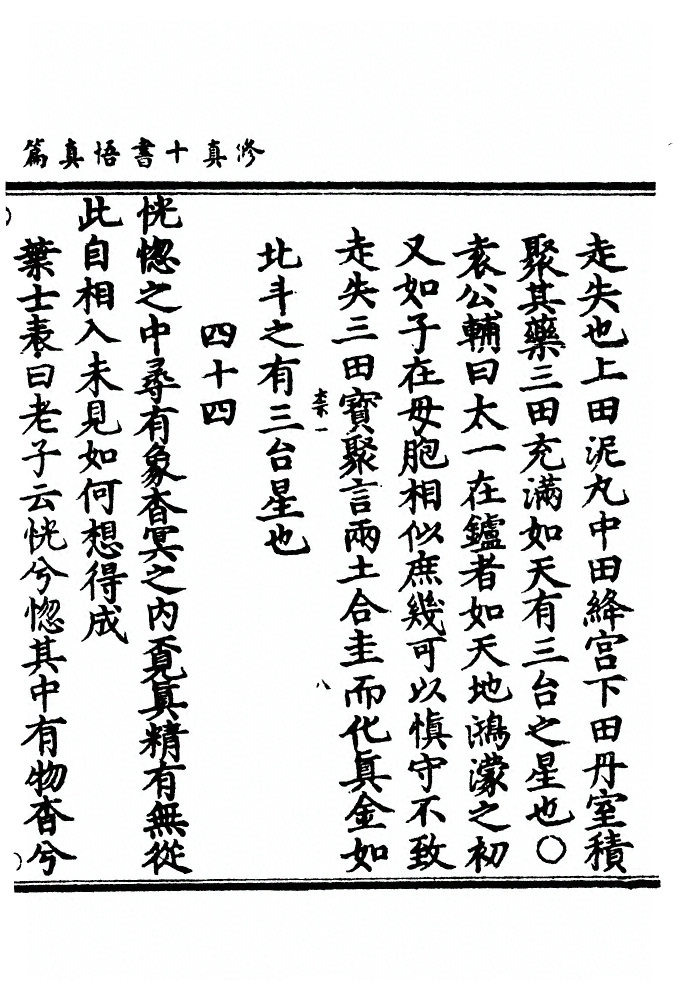 修真十書悟真篇
走失也上田泥丸中田絳宫下田丹室積
聚其藥三田充滿如天有三台之星也〇
袁公輔曰太一在鑪者如天地鴻濛之初
又如子在母胞相似庶幾可以慎守不致
走失三田寶聚言兩土合圭而化真金如
北斗之有三台星也
四十四
恍惚之中尋有象杳冥之内覓真精有無從
此自相入未見如何想得成
葉士表曰老子云恍兮惚其中有物杳兮